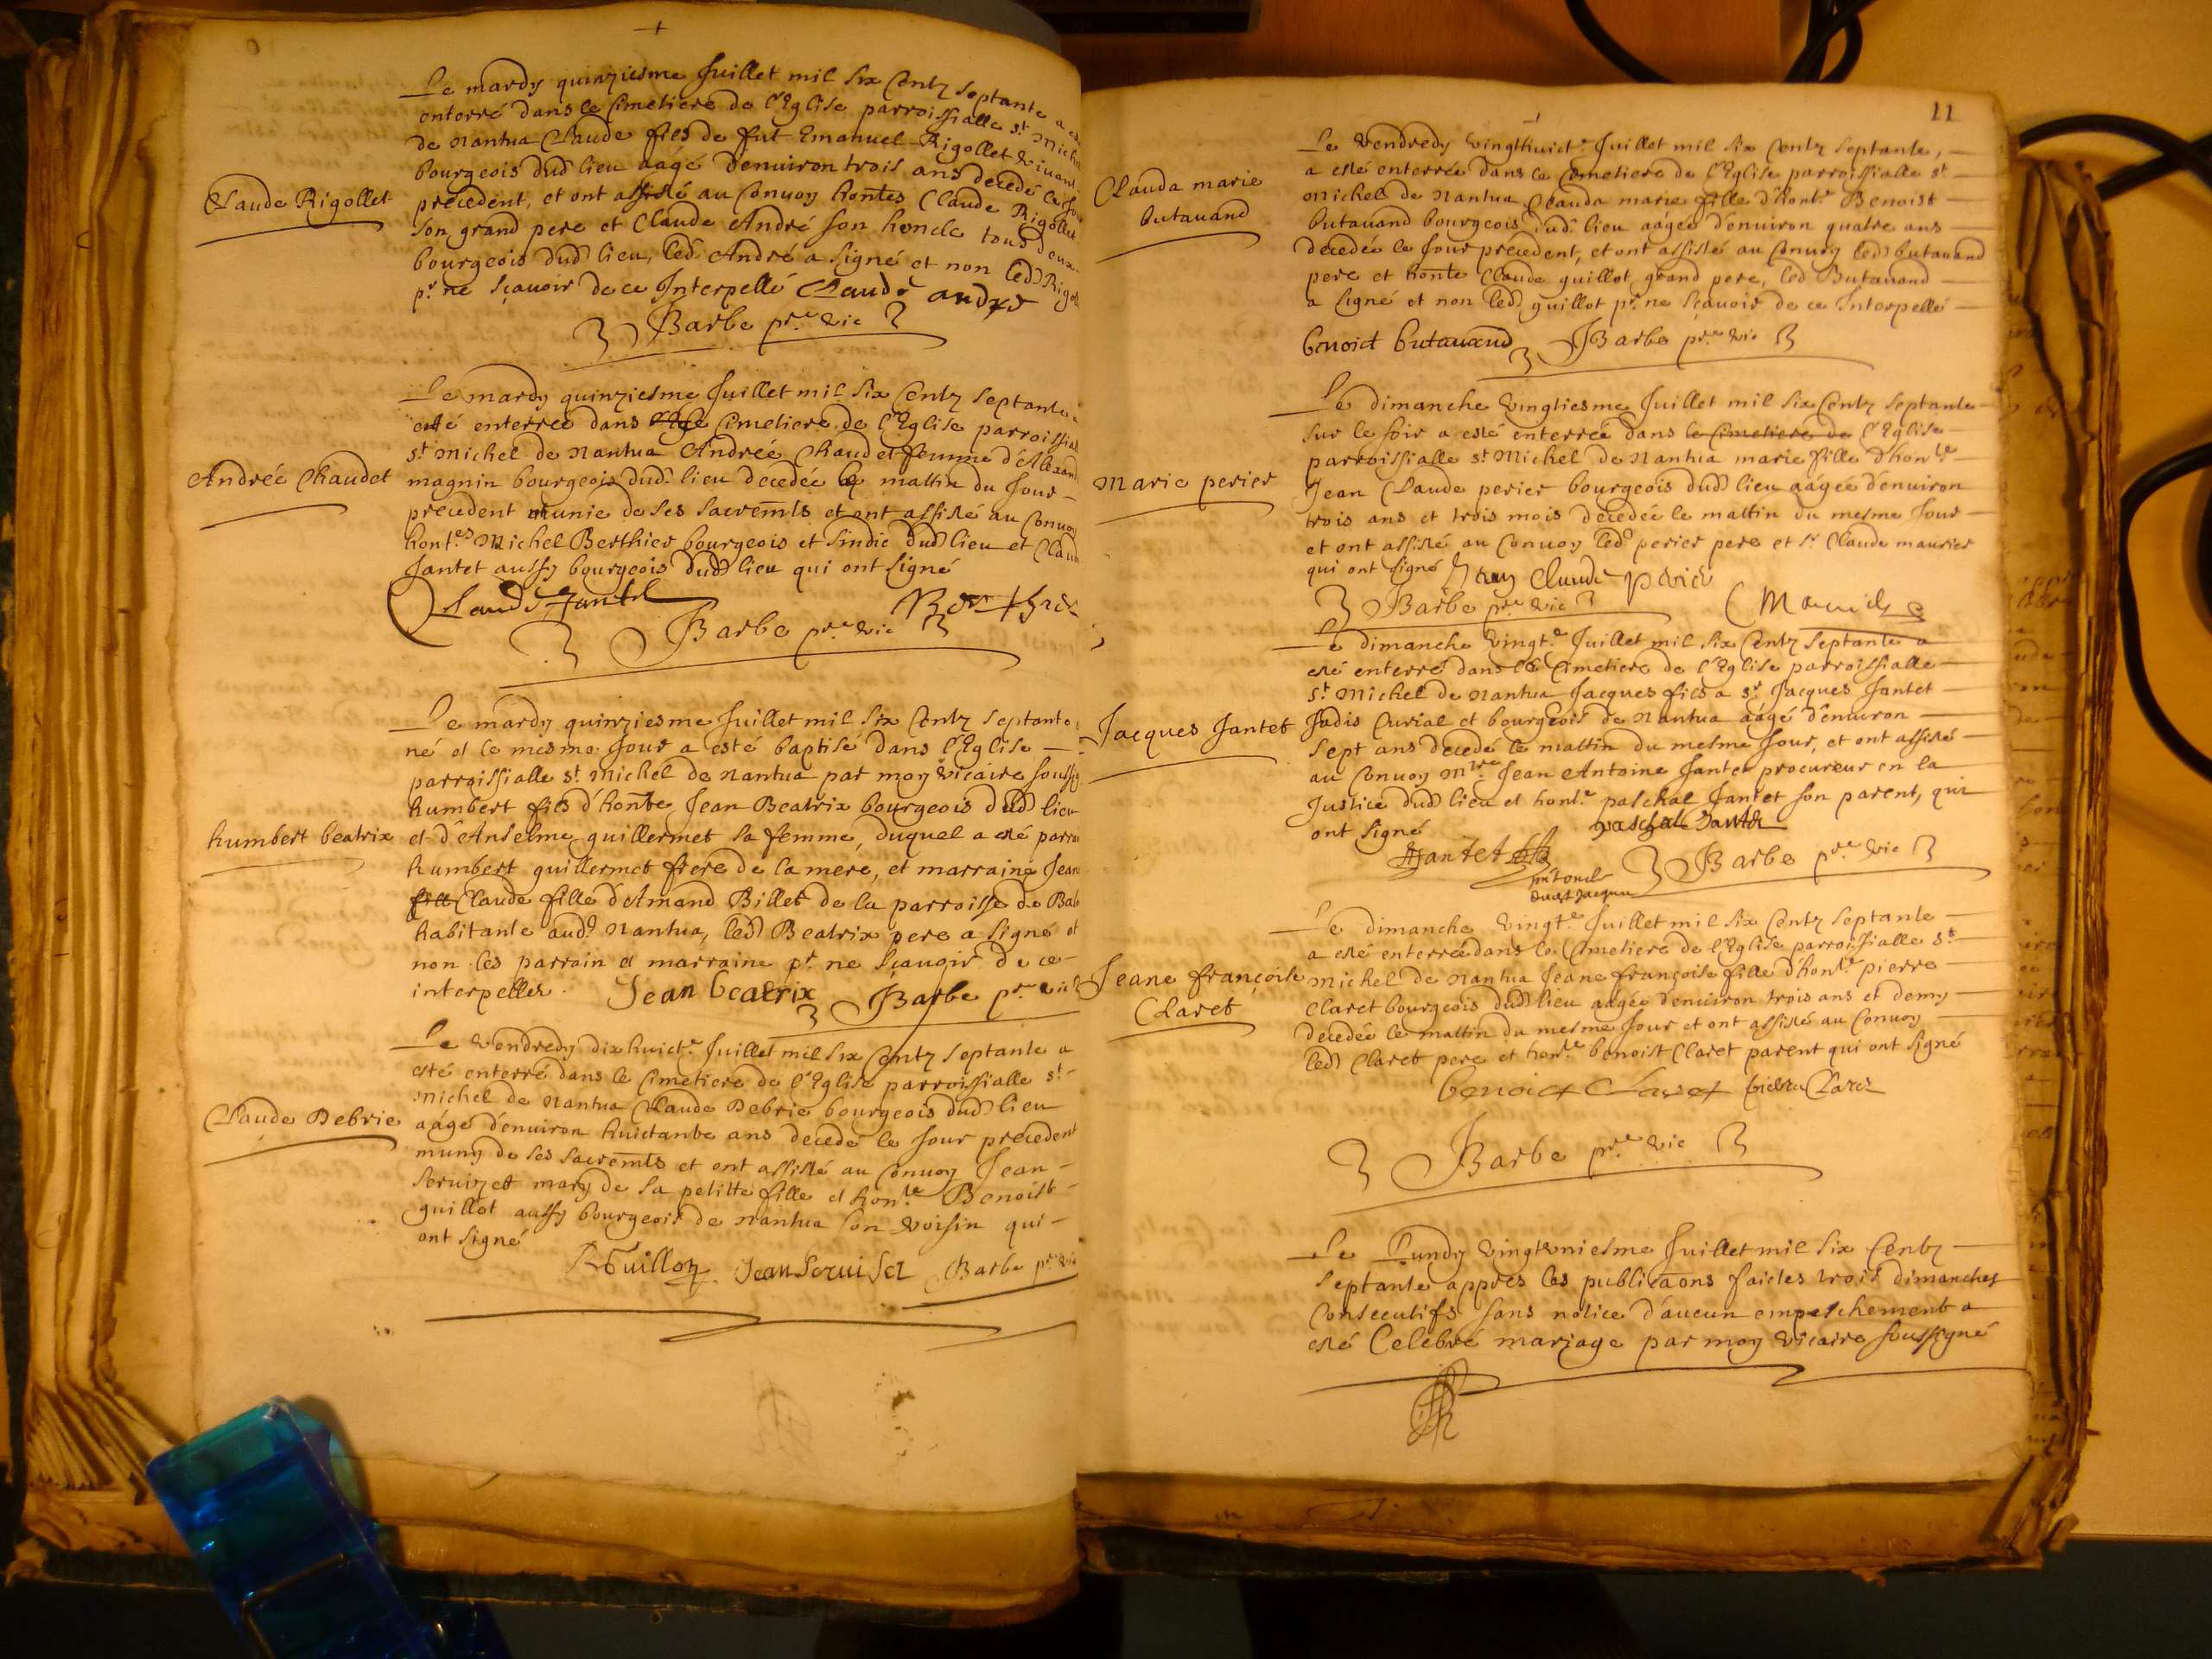 Le mardy quinziesme Juillet mil six Centz septante a
enterré dans le Cimetiere de l'Eglise parroissialle st Michel
de Nantua Claude fils de fut Emanuel Rigollet vivant
bourgeois dud lieu aagé d'enuiron trois ans decedé le Jour
Claude Rigollet
precedent, et ont assisté au Conuoy hontes Claude Rigollet
son grand pere et Claude André son honcle tous deux
bourgeois dud lieu, led André a signé et non led Rigoll
pr ne sçauoir de ce Interpellé Claude andre
Barbe pre vic
Le mardy quinziesme Juillet mil six Centz septante a
esté enterrée dans le Cimetiere de l'Eglise parroissial
st Michel de Nantua Andrée Chaudet femme d'Alexand
Andrée Chaudet
magnin bourgeois dud lieu decedée le mattin du Jour
precedent munie de ses sacremts et ont assisté au Conuoy
hontes Michel Berthier bourgeois et sindic dud lieu et Claud
Jantet aussy bourgeois dud lieu qui ont signé
Claude Jantet Berthier
Barbe pre vic
Le mardy quinziesme Juillet mil six Centz septante
né et le mesme Jour a esté baptisé dans l'Eglise
parroissialle st Michel de Nantua par moy vicaire soussig
humbert fils d'honte Jean Beatrix bourgeois dud lieu
humbert beatrix
et d'Anselme guillermet sa femme, duquel a esté parra
humbert guillermet frere de la mere, et marraine Jean
fill Claude fille d'Amand Billet de la parroisse de
habitante aud Nantua, led Beatrix pere a signé et
non les parrain et marraine pr ne sçauoir de ce
interpelles. Jean beatrix Barbe pre vic
Le vendredy dixhuicte Juillet mil six Centz septante a
esté enterré dans le Cimetiere de l'Eglise parroissialle st
Michel de Nantua Claude Debrie bourgeois dud lieu
Claude Debrie
aagé d'enuiron huictante ans decedé le Jour precedent
muny de ses sacremts et ont assisté au Conuoy Jean
seruizet mary de sa petitte fille et honte Benoist
guillot aussy bourgeois de Nantua son voisin qui
ont signé
Jean Seruiset Barbe pre vic
11
Le vendredy vingthuicte Juillet mil six Centz septante,
a esté enterrée dans le Cimetiere de l'Eglise parroissialle st
Clauda marie
Michel de Nantua Clauda marie fille d'honte Benoist
butauand
butauand bourgeois dud lieu aagée d'enuiron quatre ans
decedée le Jour precedent, et ont assisté au Conuoy led butauand
pere et honte Claude guillot grand pere, led Butauand
a signé et non led guillot pr ne sçauoir de ce Interpellé
benoict butauand Barbe pre vic
Le dimanche vingtiesme Juillet mil six Centz septante
sur le soir a esté enterrée dans le Cimetiere de l'Eglise
parroissialle st Michel de Nantua marie fille d'honte
marie perier
Jean Claude perier bourgeois dud lieu aagée d'enuiron
trois ans et trois mois decedée le mattin du mesme Jour
et ont assisté au Conuoy led perier pere et sr Claude maurier
qui ont signé Jean Claude perier
Barbe pre vic
Le dimanche vingte Juillet mil six Centz septante a
esté enterré dans le Cimetiere de l'Eglise parroissialle
st Michel de Nantua Jacques fils a sr Jacques Jantet
Jacques Jantet
Jadis Curial et bourgeois de Nantua aagé d'enuiron
sept ans decedé le mattin du mesme Jour, et ont assisté
au Conuoy mtre Jean Antoine Jantet procureur en la
Justice dud lieu et honte paschal Jantet son parent, qui
ont signé paschal Jantet
Jantet
Barbe pre vic
Le dimanche vingte Juillet mil six Centz septante
a esté enterrée dans le Cimetiere de l'Eglise parroissialle st
Jeane françoise
Michel de Nantua Jeane françoise fille d'honte pierre
Claret
Claret bourgeois dud lieu aagée d'enuiron trois ans et demy
decedée le mattin du mesme Jour et ont assisté au Conuoy
led Claret pere et honte benoist Claret parent qui ont signé
benoict Claret pierre Claret
Barbe pre vic
Le Lundy vingtvniesme Juillet mil six Centz
septante appres les publicaons faictes trois dimanches
Consecutifs sans notice d'aucun empeschement a
esté Celebré mariage par moy vicaire soussigné